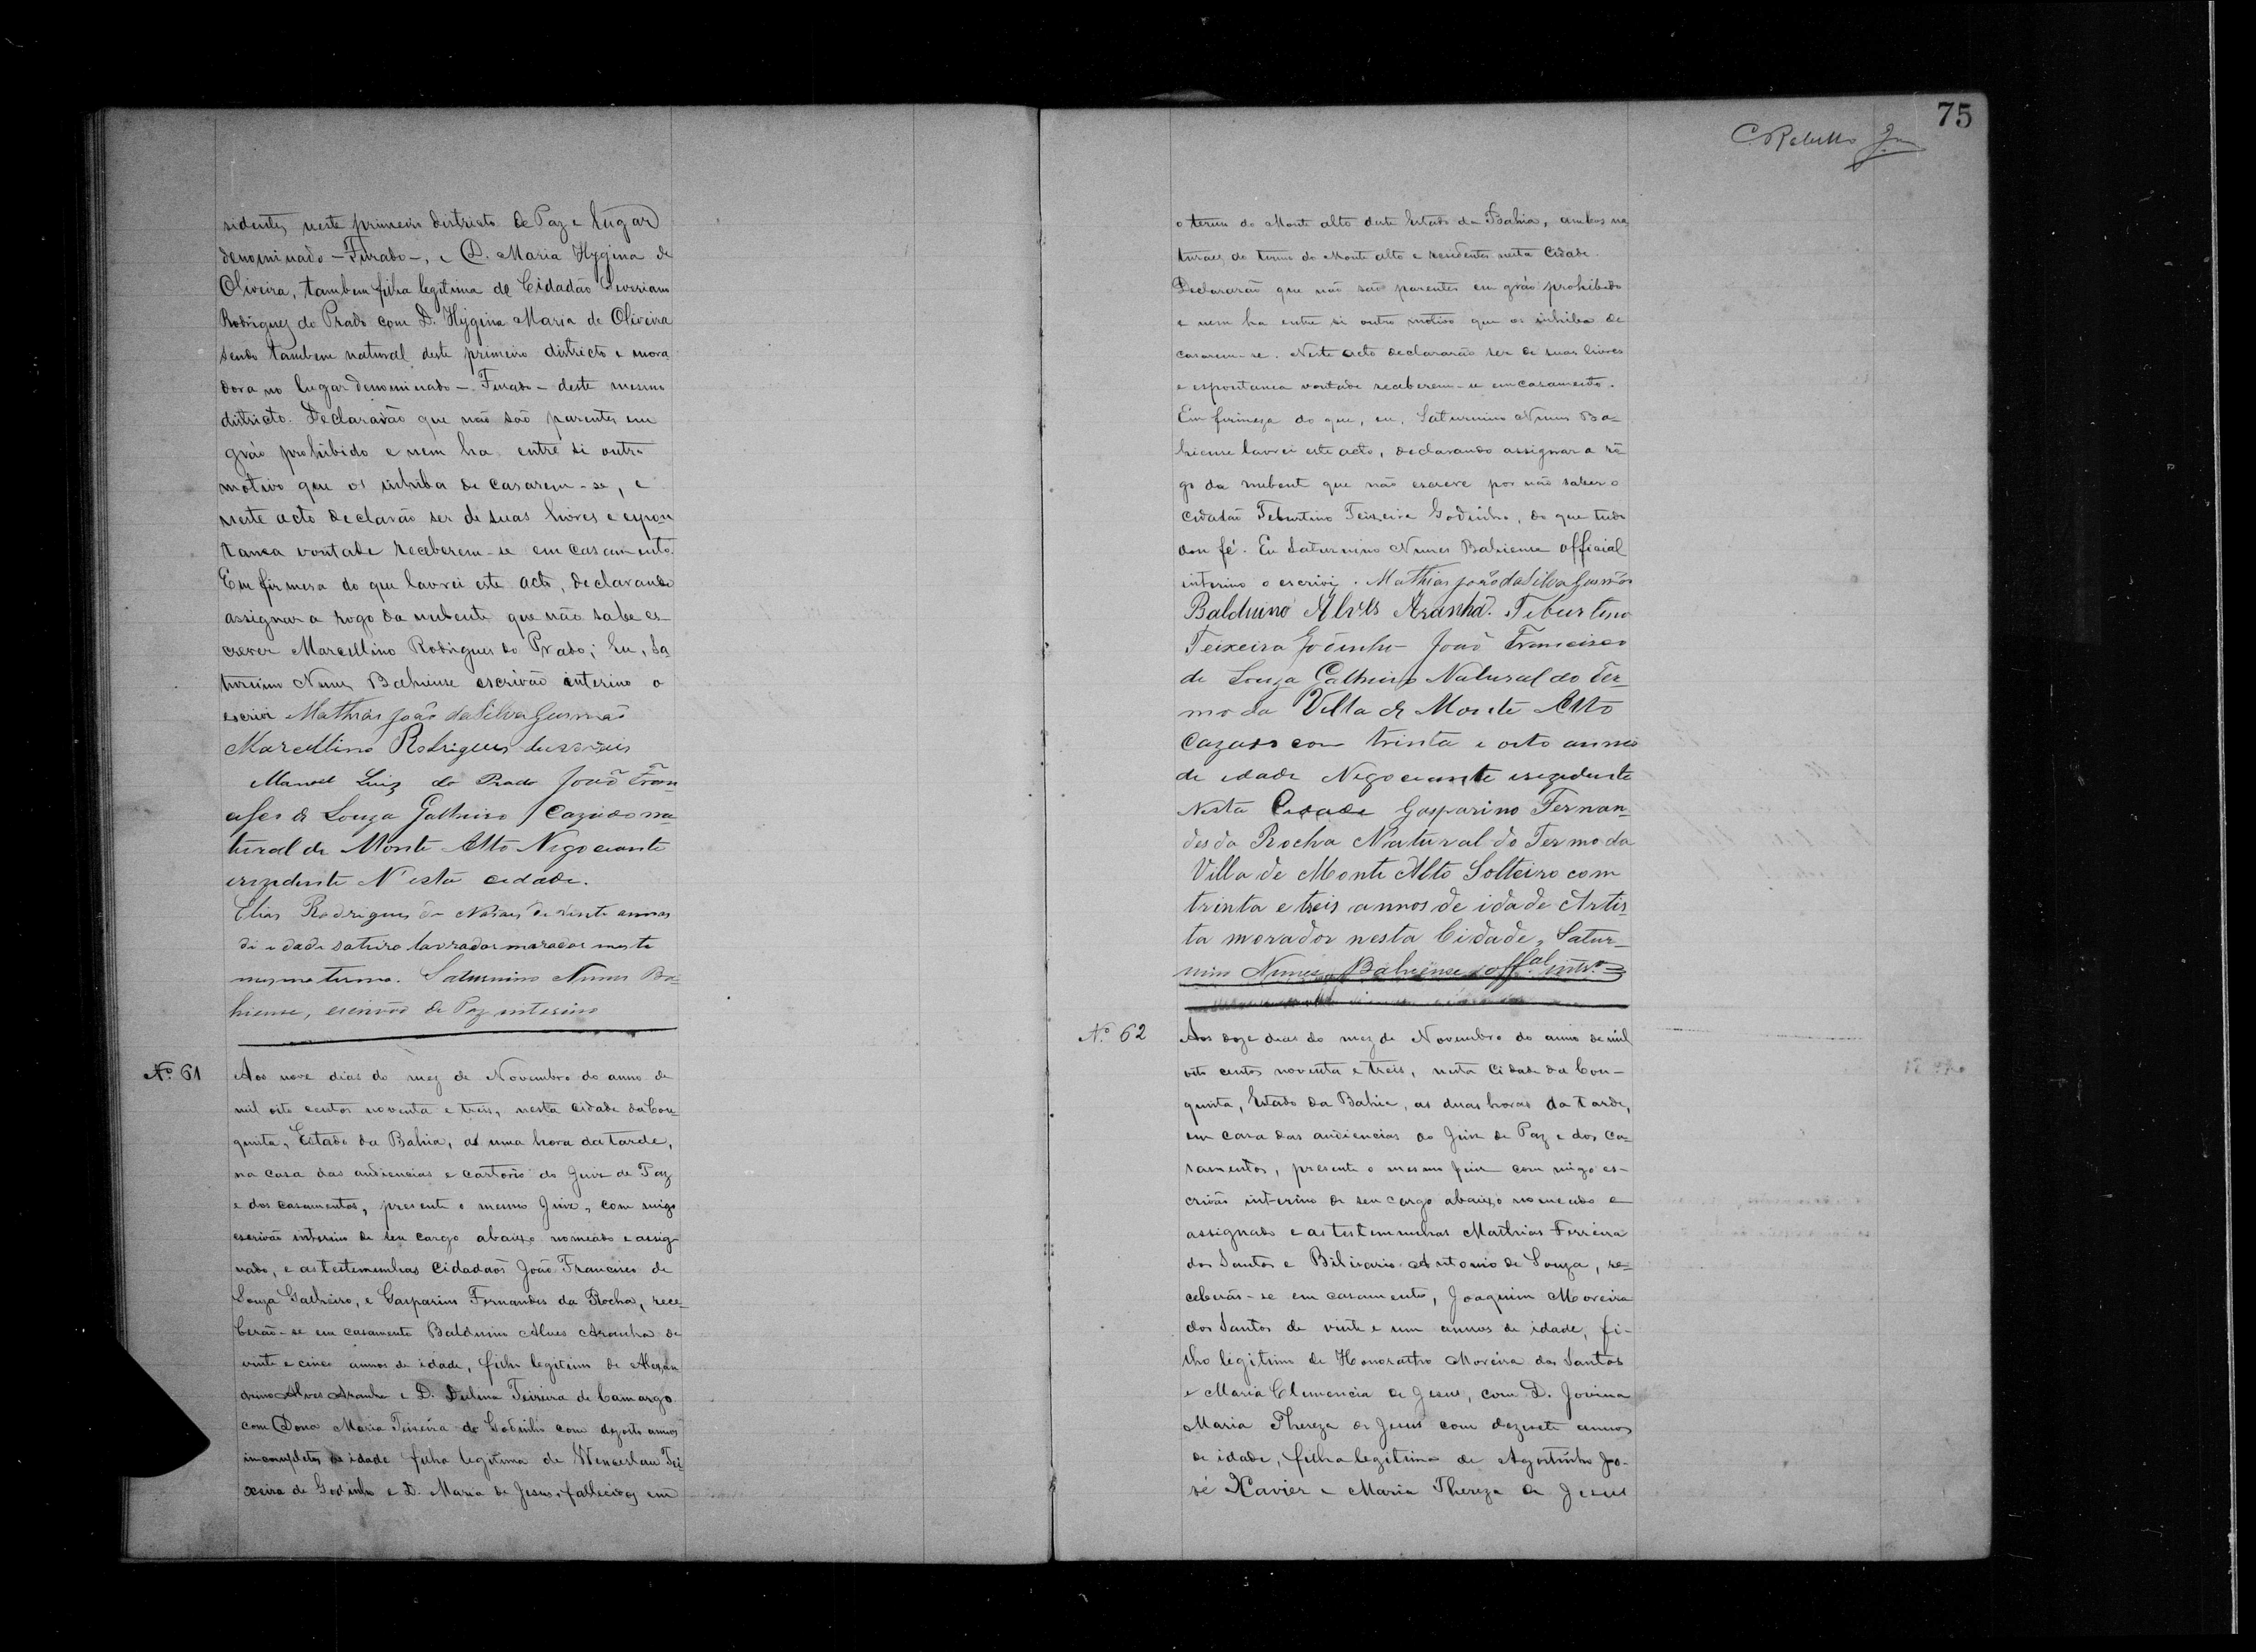 sidentes neste primeiro districto de Paz e lugar
denominado - Furado -, e D. Maria Hygina de
Oliveira, tambem filha legitima de Cidadão Severiano
Rodrigues do Prado com D. Hygina Maria de Oliveira
sendo tambem natural deste primeiro districto e mora
dora no lugar denominado - Furado - deste mesmo
districto. Declararão que não são parentes em
gráo prohibido e nem ha entre si outro
motivo que os inhiba de casarem-se, e
neste acto declarão ser de suas livres e espon
tanea vontade receberem-se em casamento.
Em firmesa do que lavrei este acto, declarando
assignar a rogo da nubente que não sabe es-
crever Marcellino Rodrigues do Prado; Eu, Sa
turnino Nunes Bahiense escrivão interino o
escrivi Mathias João da Silva Gusmão
Marcellino Rodrigues
Manoel Luiz do Prado João Fran
de Souza Galheiro Cazado na
tural de Monte Alto Negociante
Nesta cidade.
Elias Rodrigues de Novais de vinte annos
di idade lavrador morador neste
mesmo termo. Saturnino Nunes Ba
hiense, escrivão de Paz interino
Nº 61
Aos nove dias do mez de Novembro do anno de
mil oito centos noventa e tres, nesta Cidade da Con
quista, Estado da Bahia, as uma hora da tarde,
na casa das audiencias e cartorio do Juiz de Paz
e dos casamentos, presente o mesmo Juiz, com migo
escrivão interino de seu cargo abaixo nomeado e assig
nado, e as testemunhas Cidadãos João Francisco de
Souza Galheiro, e Gasparino Fernandes da Rocha, rece-
berão-se em casamento Balduino Alves Aranha de
vinte e cinco annos de idade, filho legitimo de Alexan
drino Alves Aranha e D. Teixeira de Camargo
com Dona Maria Teixeira de Godinho com dezoito annos
incompletos de idade filha legitima de Wenceslau Tei
xeira de Godinho e D. Maria de Jesus, fallecidos em
75
C Rebello Jnr
o termo do Monte alto deste Estado da Bahia, ambos na
turaes do termo do Monte alto e residentes nesta Cidade.
Declararão que não são parentes em gráo prohibido
e nem ha entre si outro motivo que os inhiba de
casarem-se. Neste acto declararão ser de suas livres
e espontanea vontade receberem-se em casamento.
Em firmeza do que, eu, Saturnino Nunes Ba-
hiense lavrei este acto, declarando assignar a ro
go da nubent que não escreve por não saber o
cidadão Teburtino Teixeira Godinho, do que tudo
dou fé. Eu Saturnino Nunes Bahiense official
interino o escrivi. Mathias João da Silva Gusmão
Balduino Alves Aranha. Tiburtino
Teixeira Godinho João Francisco
de Souza Galheiro Natural do Ter-
mo da Villa de Monte Alto
Cazado com trinta e oito annos
de idade Negociante
Nesta Cidade Gasparino Fernan-
des da Rocha Natural do Termo da
Villa de Monte Alto Solteiro com
trinta e treis annos de idade Artis-
ta morador nesta Cidade, Satur-
nino Nunes Bahiense offal intº
Nº 62
Aos doze dias do mez de Novembro do anno de mil
oito centos noventa e treis, nesta Cidade da Con-
quista, Estado da Bahia, as duas horas da tarde,
em casa das audiencias do Juiz de Paz e dos ca-
samentos, presente o mesmo Juiz com migo es-
crivão interino de seu cargo abaixo nomeado e
assignado e as testemunhas Mathias Ferreira
dos Santos e Bilisario Antonio de Souza, re-
ceberão-se em casamento, Joaquim Moreira
dos Santos de vinte e um annos de idade, fi-
lho legitimo de Honoratho Moreira dos Santos
e Maria Clemencia de Jesus, com D. Jovina
Maria Thereza de Jesus com dezesete annos
de idade, filha legitima de Agostinho Jo-
sé Xavier e Maria Thereza de Jesus